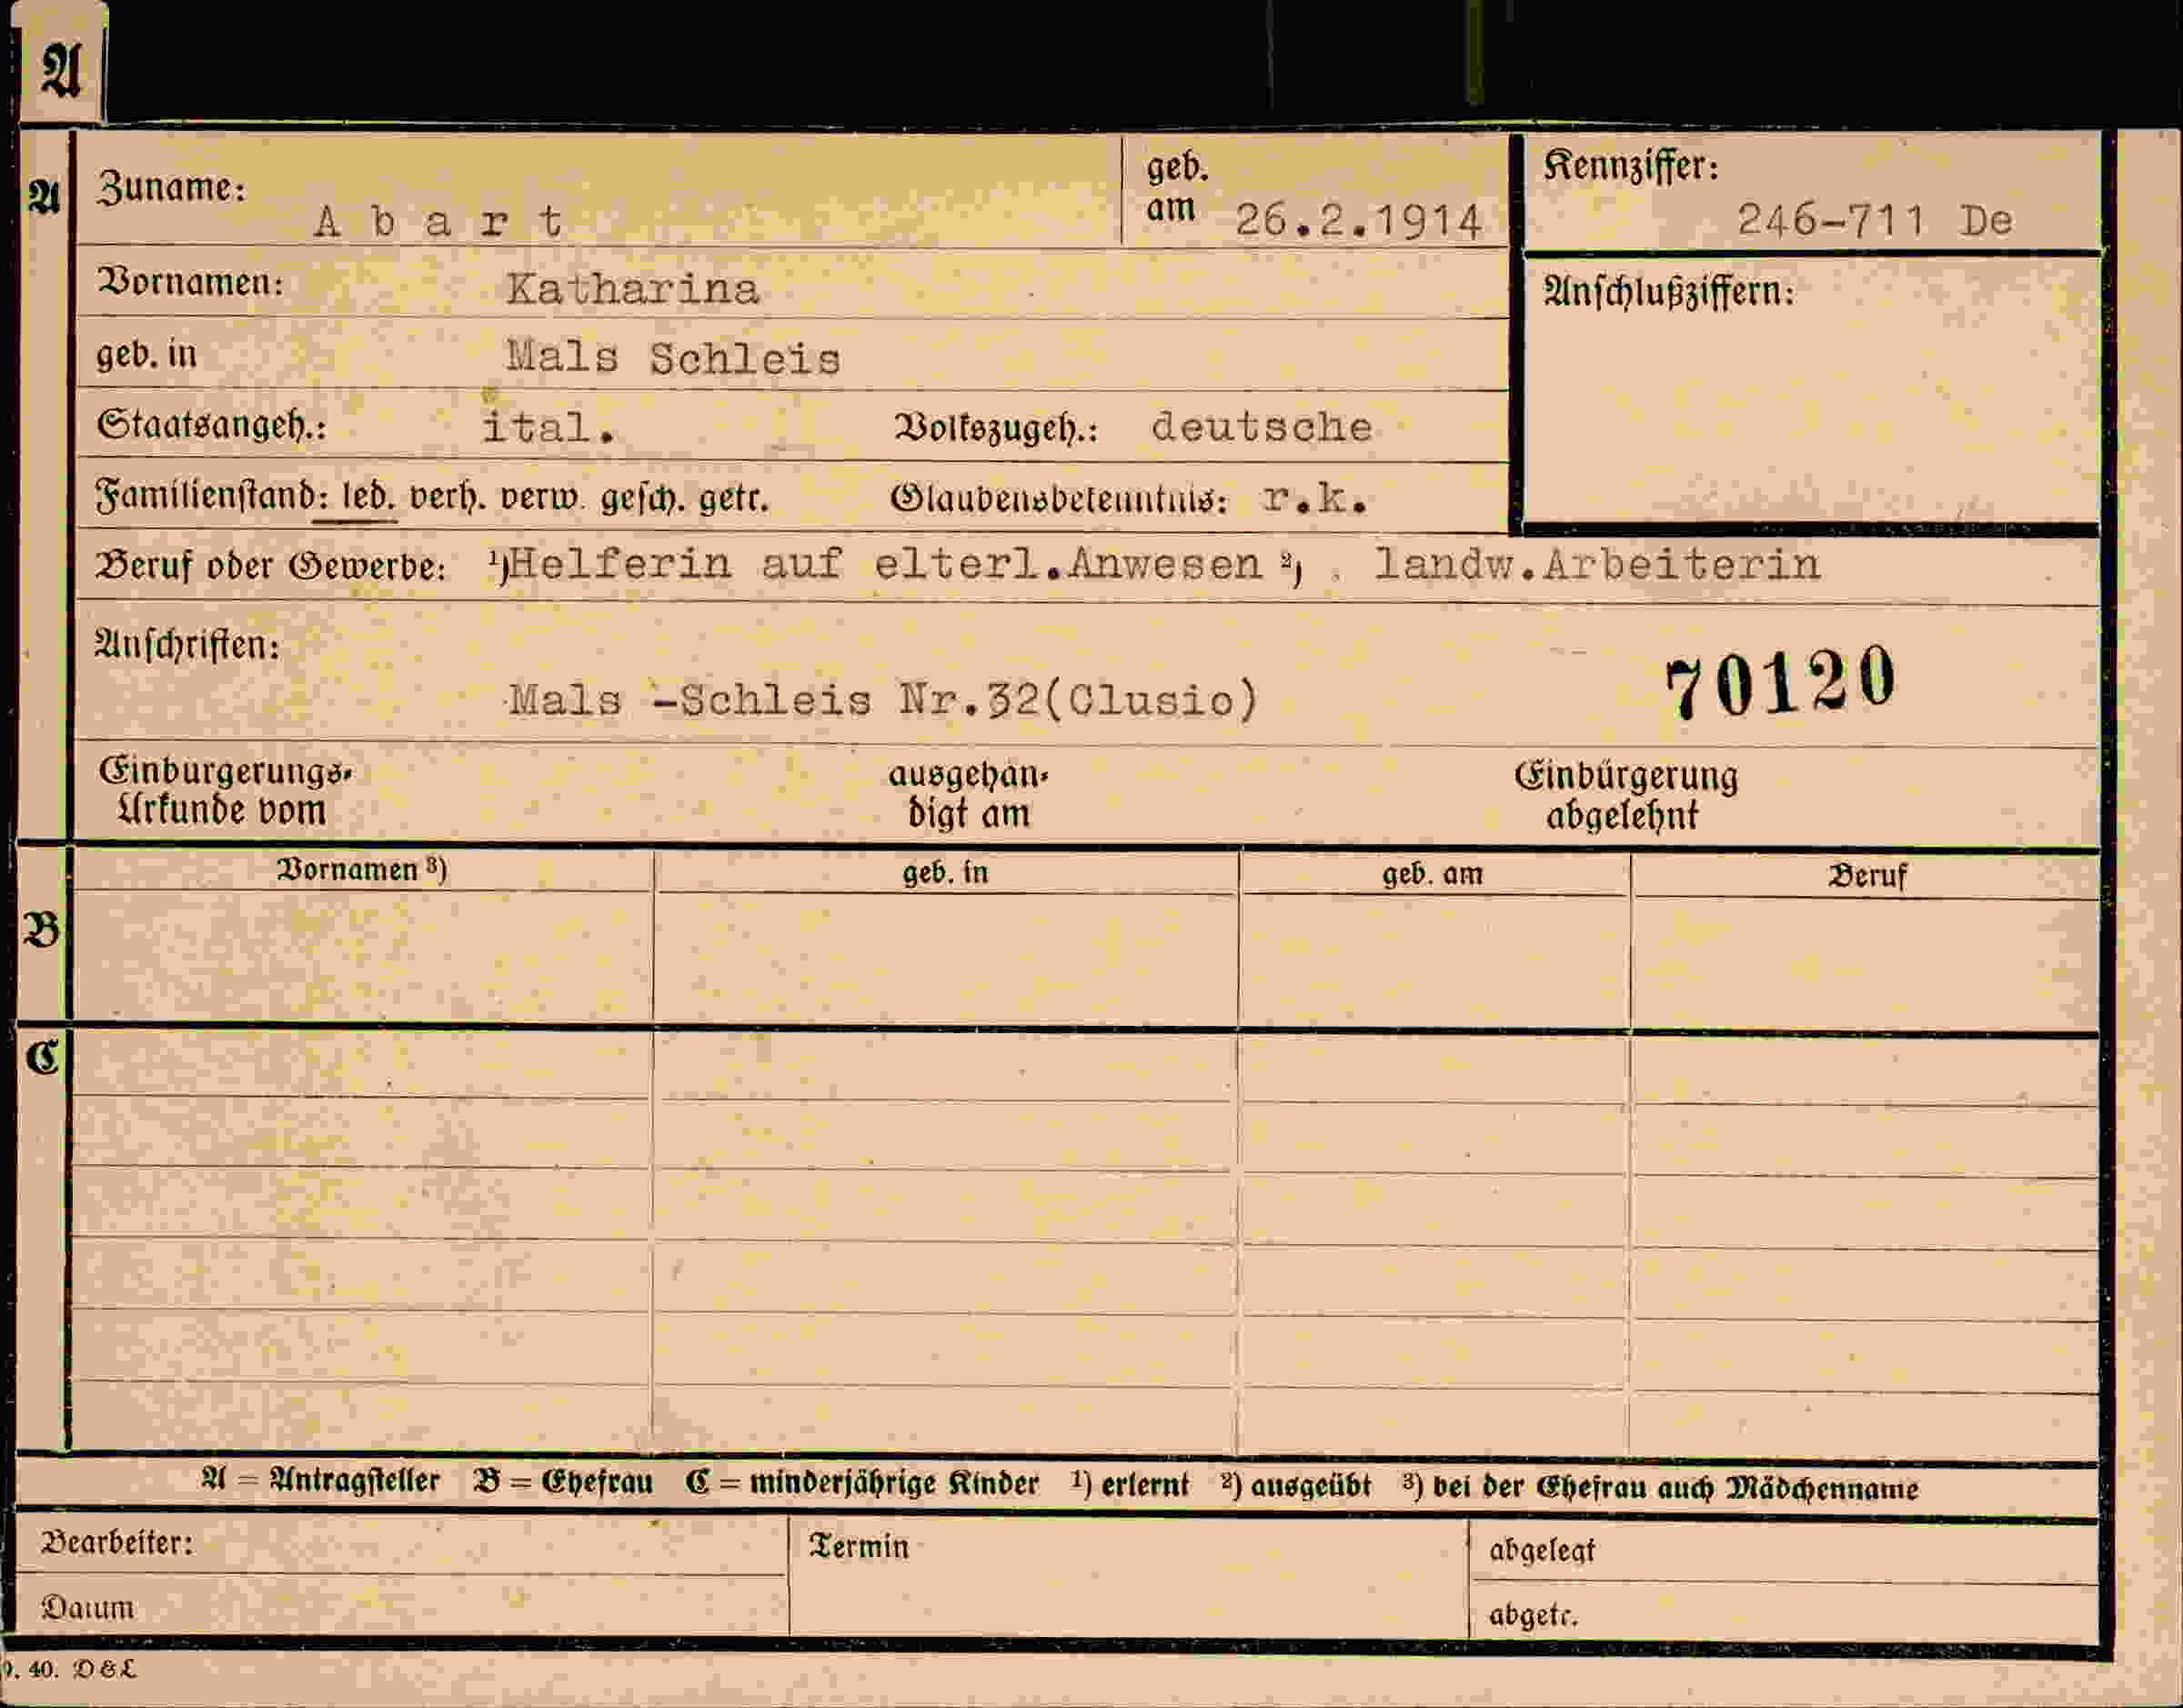 A
A Zuname: Abart geb. am 26.2.1914 Kennziffer: 246-711 De
Vornamen: Katharina Anschlußziffern:
geb. in Mals Schleis
Staatsangeh.: ital. Volkszugeh.: deutsche
Familienstand: led. verh. verw. gesch. getr. Glaubensbekenntnis: r.k.
Beruf oder Gewerbe: ¹)Helferin auf elterl.Anwesen ²) landw.Arbeiterin
Anschriften:
Mals -Schleis Nr.32(Clusio) 70120
Einbürgerungs- ausgehän- Einbürgerung
Urkunde vom digt am abgelehnt
Vornamen ³) geb. in geb. am Beruf
B
C
A = Antragsteller B = Ehefrau C = minderjährige Kinder ¹) erlernt ²) ausgeübt ³) bei der Ehefrau auch Mädchenname
Bearbeiter: Termin abgelegt
Datum abgetr.
9. 40. D & L